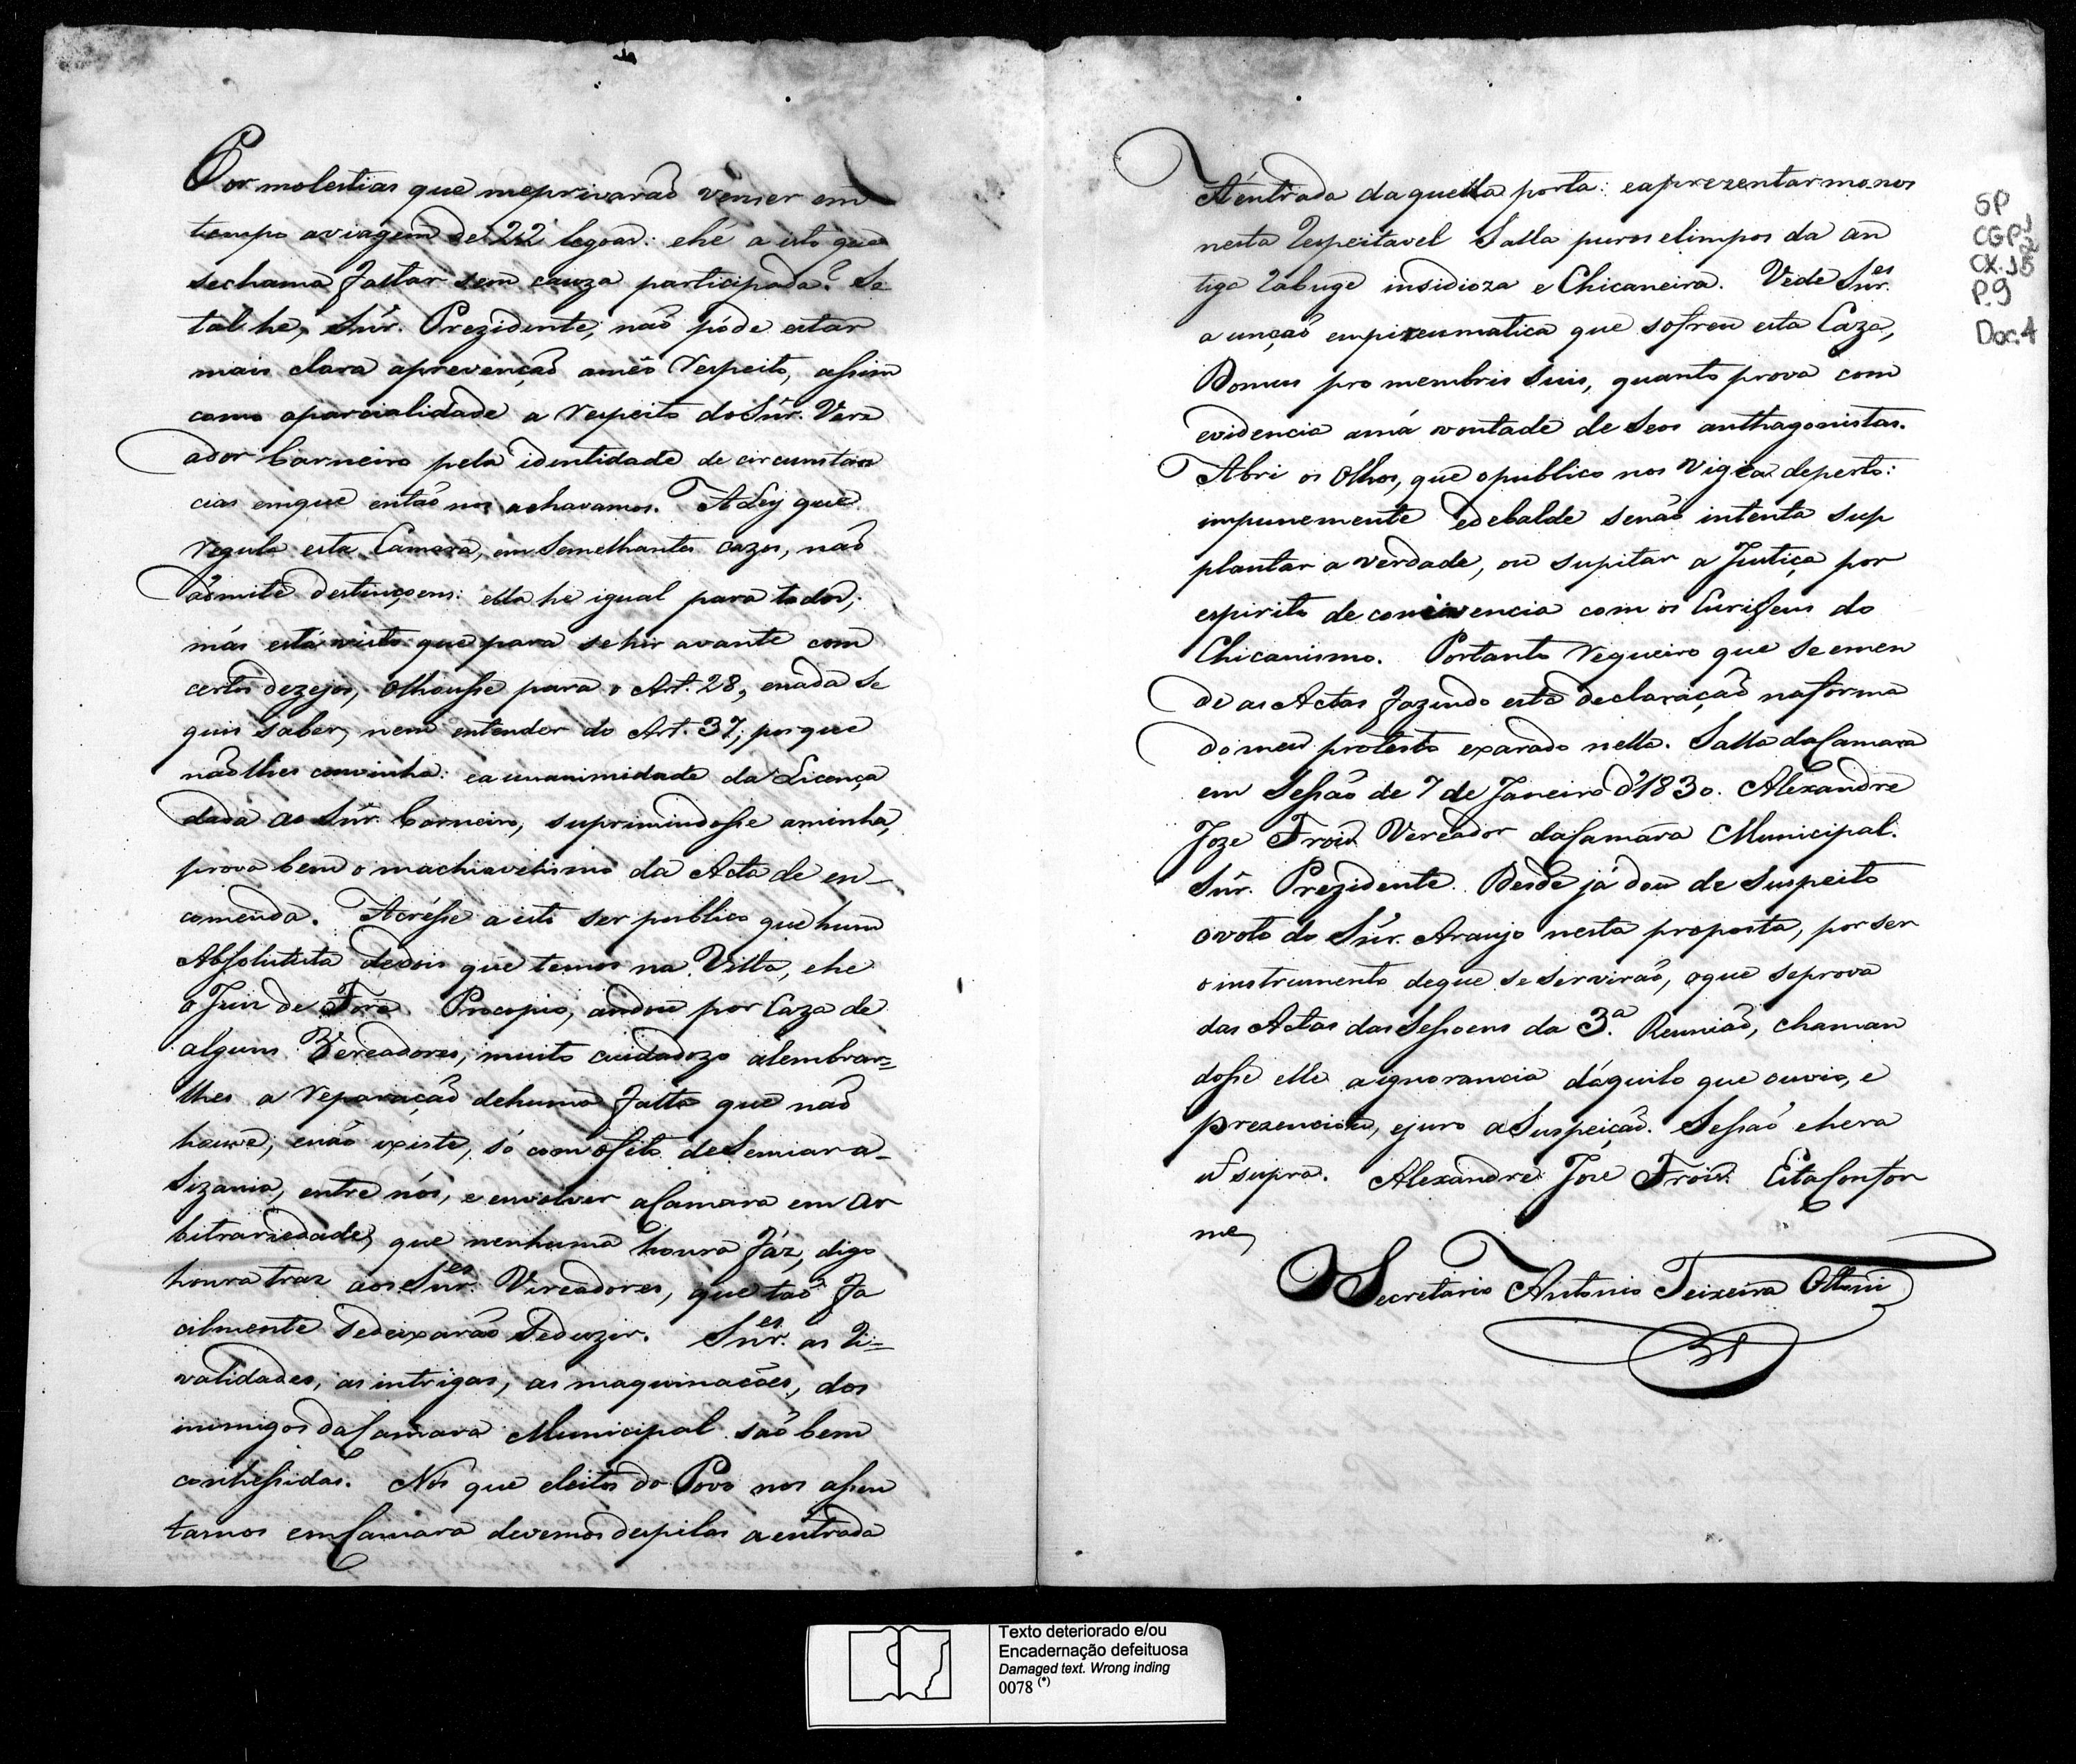 Por molestias que meprivaraõ venser em
tempo aviagem de 22 legoas: ehé a isto que
sechama faltar sem cauza participada? Se
tal he, Snr. Prezidente, naõ póde estar
mais clara aprevençaõ améo respeito, assim
como aparcialidade a respeito do Snr. Vere
ador Carneiro pela identidade de circunstan
cias emque entaõ nos achavamos. A Ley que
regula esta Camara, em Semelhantes cazos, naõ
admite destinçoens: ella he igual para todos;
más está visto que para sehir avante com
certos dezejos, Olhousse para o Art. 28, enada se
quis saber, nem entender do Art. 37, porque
naõ lhes convinha: ea unanimidade da Licença
dada ao Snr. Carneiro, suprimindosse aminha,
prova bem o machiavelismo da Acta de en-
comenda. Acrésse a isto ser publico que hum
Absolutista dedois que temos na Villa, ehe
o Juiz de Fora Procopio, andou por Caza de
alguns Vereadores, muito cuidadozo alembrar=
lhes a reparaçaõ dehuma falta que naõ
houve, enaõ existe, só com ofito deSemiar a-
Sizania, entre nós, e envolver aCamara em Ar
bitrariedades, que nenhuma honra fáz, digo
honra traz aos Snr.es Vireadores, que taõ Fa
cilmente sedeixaraõ Seduzir. Snr.es as Ri=
validades, as intrigas, as maquinações, dos
inimigos daCamara Municipal saõ bem
conhessidas. Nós que eleitos do Povo nos assen
tamos emCamara devemos despilas aentrada
Aéntrada daquella porta: eaprezentarmonos
nesta Respeitavel Salla puros elimpos da an
tiga Rabuge insidioza e Chicaneira. Vede Snr.es
a unçaõ empireumatica que sofreu esta Caza,
Domus pro membris suis, quanto prova com
evidencia amá vontade de Seos anthagonistas.
Abri os Olhos, que opublico nos vigia deperto:
impunemente edebalde senaõ intenta sup
plantar a verdade, ou supitar a Justiça por
espirito de conivencia com os Curifeus do
Chicanismo. Portanto requeiro que se emen
de as Actas fazendo esta declaraçaõ naforma
do meu protesto exarado nella. Salla daCamara
em Sessaõ de 7 de Janeiro d'1830. Alexandre
Joze Frois Vereador daCamara Municipal.
Snr. Prezidente. Desde já dou de Suspeito
ovoto do Snr. Araujo nesta proposta, por ser
o instrumento deque se serviraõ, oque seprova
das Actas das Sessoens da 3.ª Reuniaõ, chaman
dosse elle a ignorancia dáquilo que ouvio, e
prezenciou, ejuro aSuspeiçaõ. Sessaõ ehera
ut supra. Alexandre Joze Frois. EstaConfor
me,
O Secretario Antonio Teixeira Ottoni
SP
CGP1
CX. 15
P. 9
Doc. 4
Texto deteriorado e/ou
Encadernação defeituosa
Damaged text. Wrong inding
0078 (*)